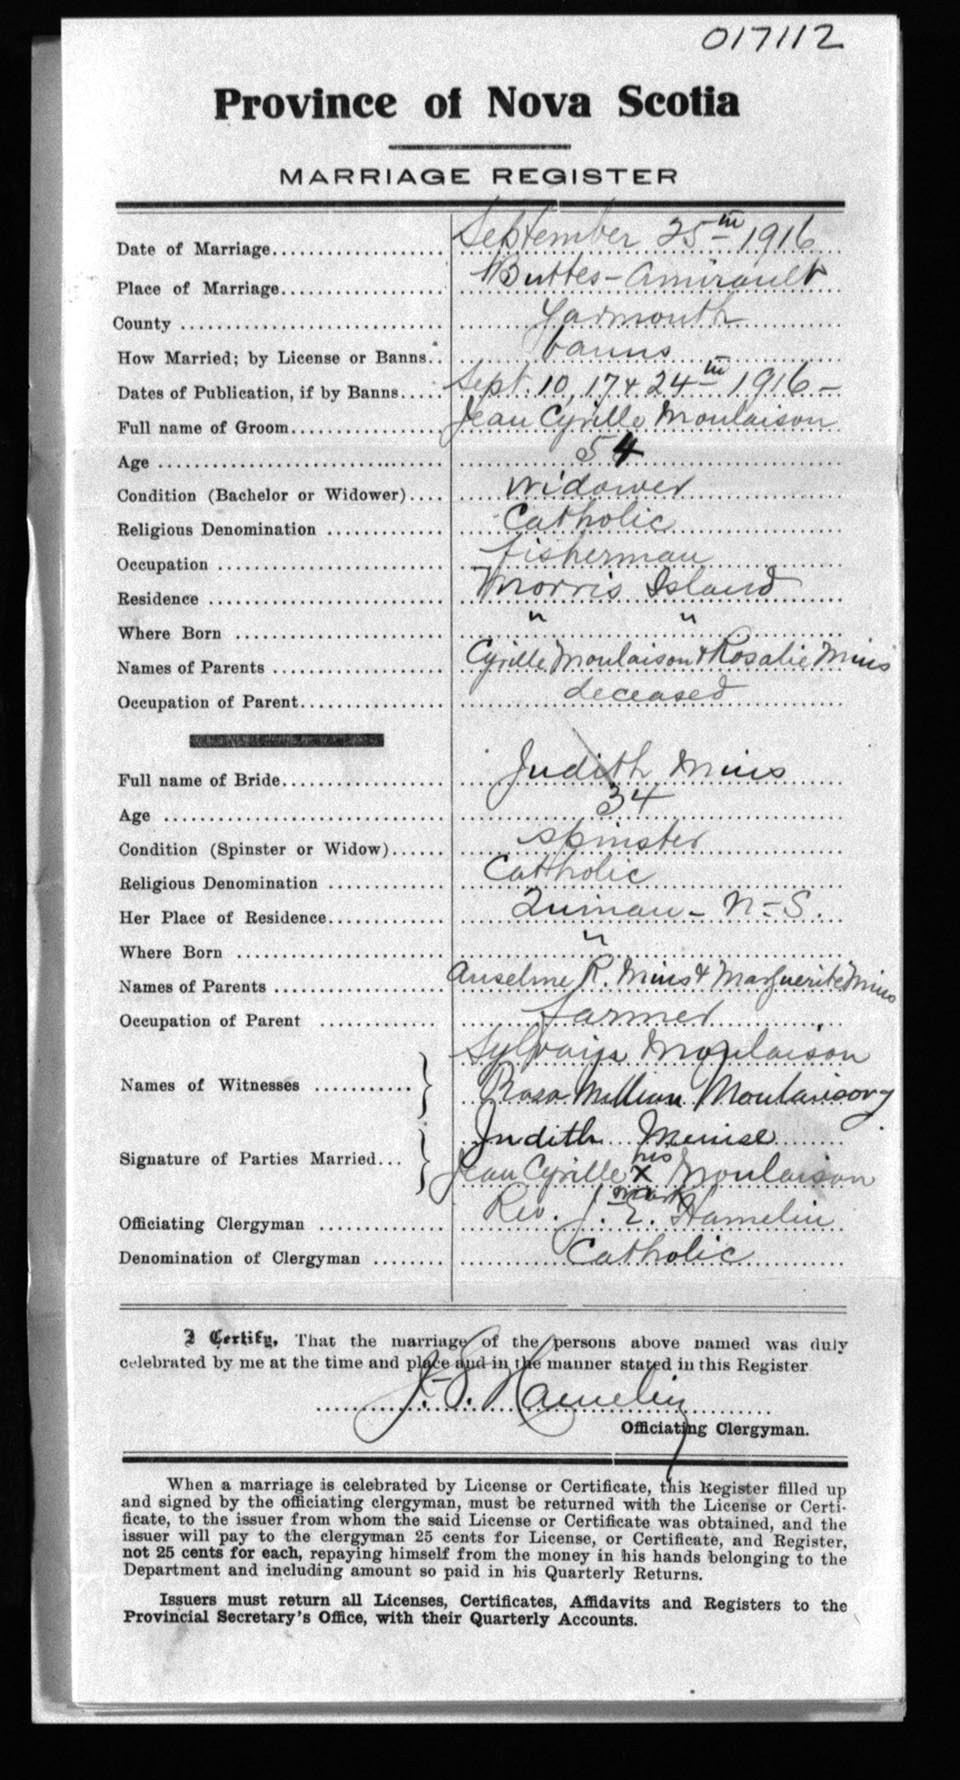 017112
Province of Nova Scotia
MARRIAGE REGISTER
Date of Marriage................... September 25th 1916
Place of Marriage.................. Buttes-Amirault
County ............................. Yarmouth
How Married; by License or Banns.. banns
Dates of Publication, if by Banns..... Sept. 10, 17 & 24th 1916-
Full name of Groom................. Jean Cyrille Moulaison
Age ................................ 54
Condition (Bachelor or Widower).... widower
Religious Denomination ............. Catholic
Occupation ......................... fisherman
Residence .......................... Morris Island
Where Born ....................... " "
Names of Parents ................... Cyrille Moulaison & Rosalie Mius
Occupation of Parent................ deceased
Full name of Bride.................. Judith Mius
Age ............................... 34
Condition (Spinster or Widow)...... spinster
Religious Denomination ............. Catholic
Her Place of Residence............. Quinan - N-S.
Where Born ........................ "
Names of Parents ................... Anselme R. Mius & Marguerite Mius
Occupation of Parent ............. farmer
Sylvain Moulaison
Names of Witnesses ...........
Rosa Moulaison
Judith Meuise
Signature of Parties Married...
his
Jean Cyrille X Moulaison
mark
Officiating Clergyman .............. Rev. J. E. Hamelin
Denomination of Clergyman ........ Catholic
I Certify, That the marriage of the persons above named was duly
celebrated by me at the time and place and in the manner stated in this Register
J.-E. Hamelin
Officiating Clergyman.
When a marriage is celebrated by License or Certificate, this Register filled up
and signed by the officiating clergyman, must be returned with the License or Certi-
ficate, to the issuer from whom the said License or Certificate was obtained, and the
issuer will pay to the clergyman 25 cents for License, or Certificate, and Register,
not 25 cents for each, repaying himself from the money in his hands belonging to the
Department and including amount so paid in his Quarterly Returns.
Issuers must return all Licenses, Certificates, Affidavits and Registers to the
Provincial Secretary's Office, with their Quarterly Accounts.